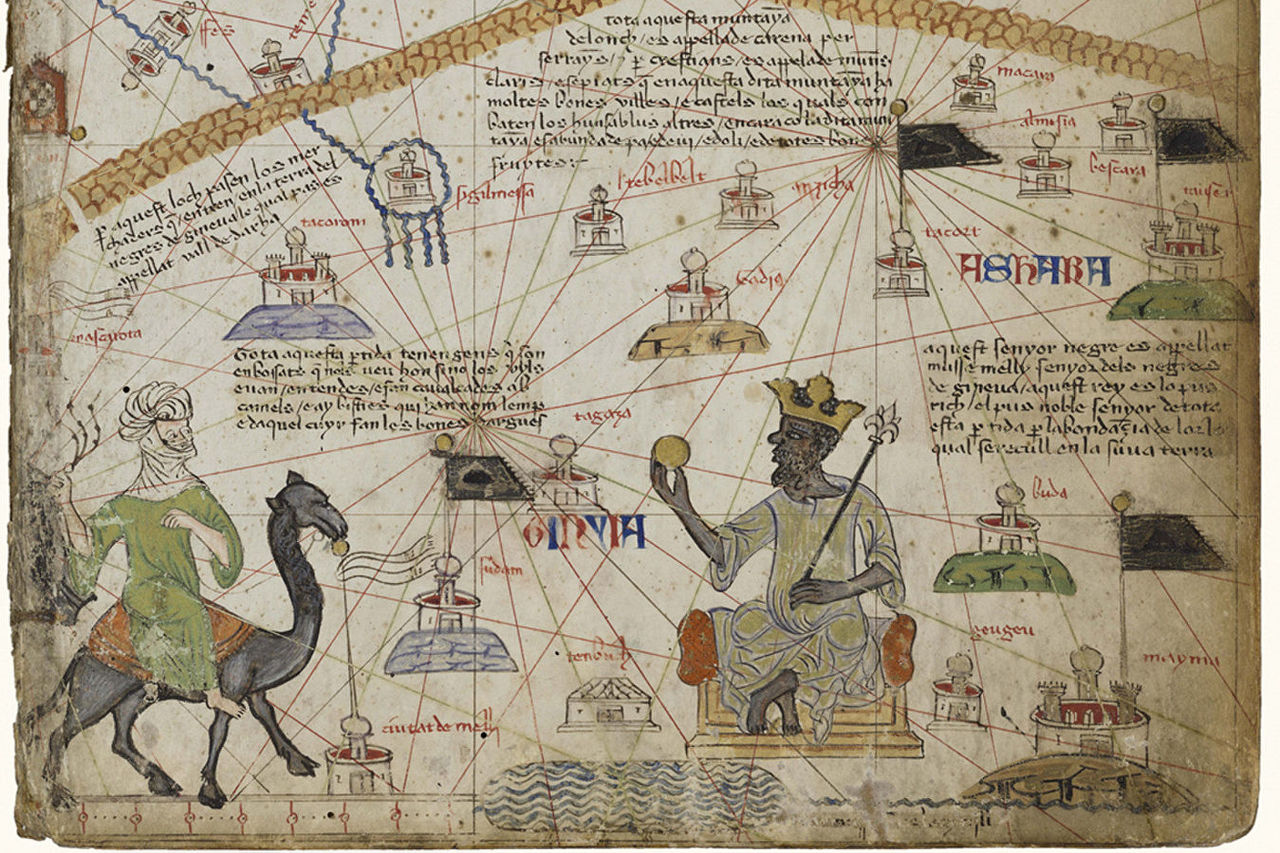 tota aquesta muntaya
de lonch / es appellade carena per
serrayns / 7 per crestians / es appelade munt
claris / e sepiats q en aquesta dita muntaya ha
moltes bones villes / e castels los quals con
baten los huns ab los altres / encara co la dita mun
taya es abunda de pa e de vi / e doli / e de totes bones
fruytes
fes
macara
almsia
bescara
P aquest loch pasen los mer
chaders q entren en la terra del
negres de gineva lo qual pas es
appellat vall de darha
sigilmessa
tebelbelt
mzicha
tacort
tacorom
ASHARA
Tota aquesta ptida tenen gens q son
enboisats q nols veu hom sino los uyls
e van / en tendes / e fan cavalcades ab
camels / e ay bisties qui han nom lemp
e daquel cuyr fan les bones dargues
aquest senyor negre es appellat
musse melly senyor dels negres
de gineva / aquest rey es lo pus
rich / el pus noble senyor de tota
esta ptida p labondazia de lor lo
qual se recull en la sua terra
tagaza
GINYIA
buda
sudam
geugeu
mayma
ciutat de melly